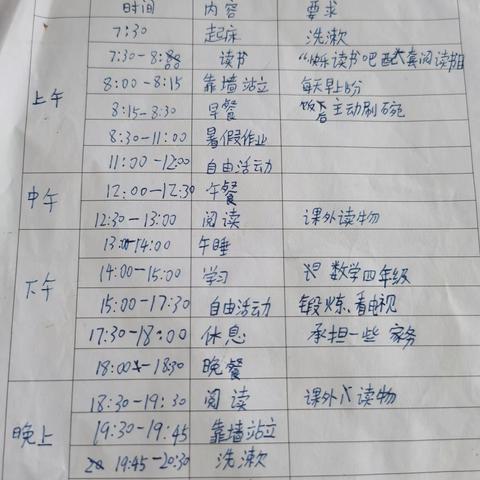 时间 内容 要求
7:30 起床 洗漱
7:30-8:00 读书 "快乐读书吧"配套阅读书目
上午 8:00-8:15 靠墙站立 每天早上
8:15-8:30 早餐 饭后主动刷碗
8:30-11:00 暑假作业
11:00-12:00 自由活动
中午 12:00-12:30 午餐
12:30-13:00 阅读 课外读物
13:00-14:00 午睡
下午 14:00-15:00 学习 数学四年级
15:00-17:30 自由活动 锻炼、看电视
17:30-18:00 休息 承担一些家务
18:00-18:30 晚餐
18:30-19:30 阅读 课外读物
晚上 19:30-19:45 靠墙站立
19:45-20:30 洗漱